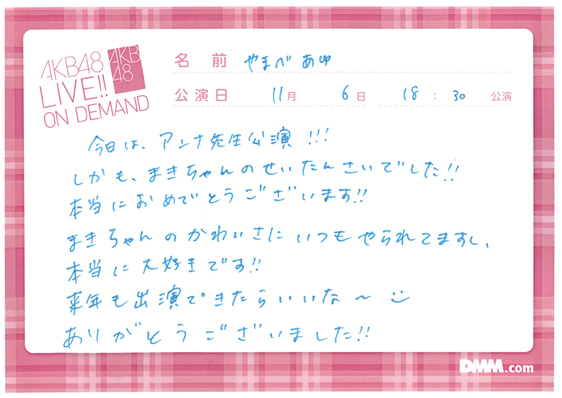 AKB48
LIVE!!
ON DEMAND
AKB
48
名前 やまべあゆ
公演日 11月 6日 18:30 公演
今日は、アンナ先生公演!!!
しかも、まきちゃんのせいたんさいでした!!
本当におめでとうございます!!
まきちゃんのかわいさにいつもやられてますし、
本当に大好きです!!
来年も出演できたらいいな〜
ありがとうございました!!
DMM.com